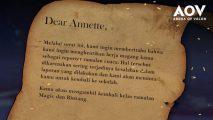 AOV
ARENA OF VALOR
Dear Annette,
Melalui surat ini, kami ingin memberitahu bahwa
kami ingin mengkhatirkan kerja magang kamu
sebagai reporter ramalan cuaca. Hal tersebut
dikarenakan sering terjadinya kesalahan dalam
laporan yang dilakukan dan kami akan memberi
kamu untuk bersekolah ke sekolah
Kamu akan mengambil kembali kelas ramalan
Magic dan Bintang.